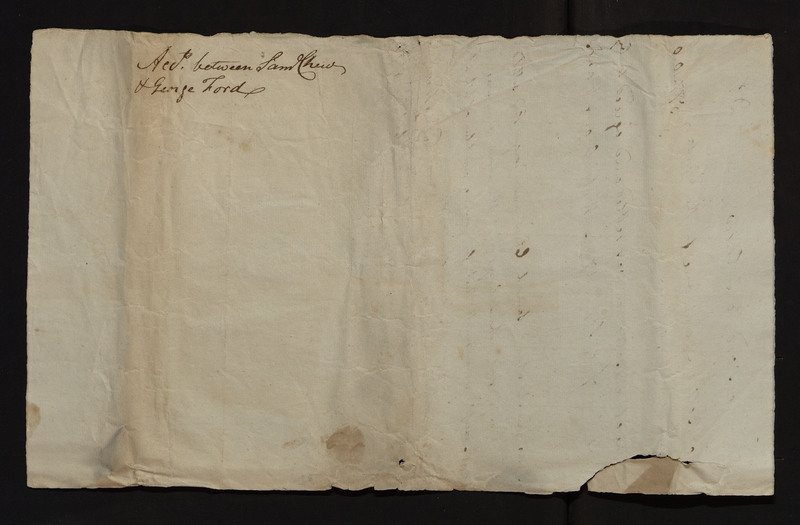 Acct. between Saml Chew
& George Ford